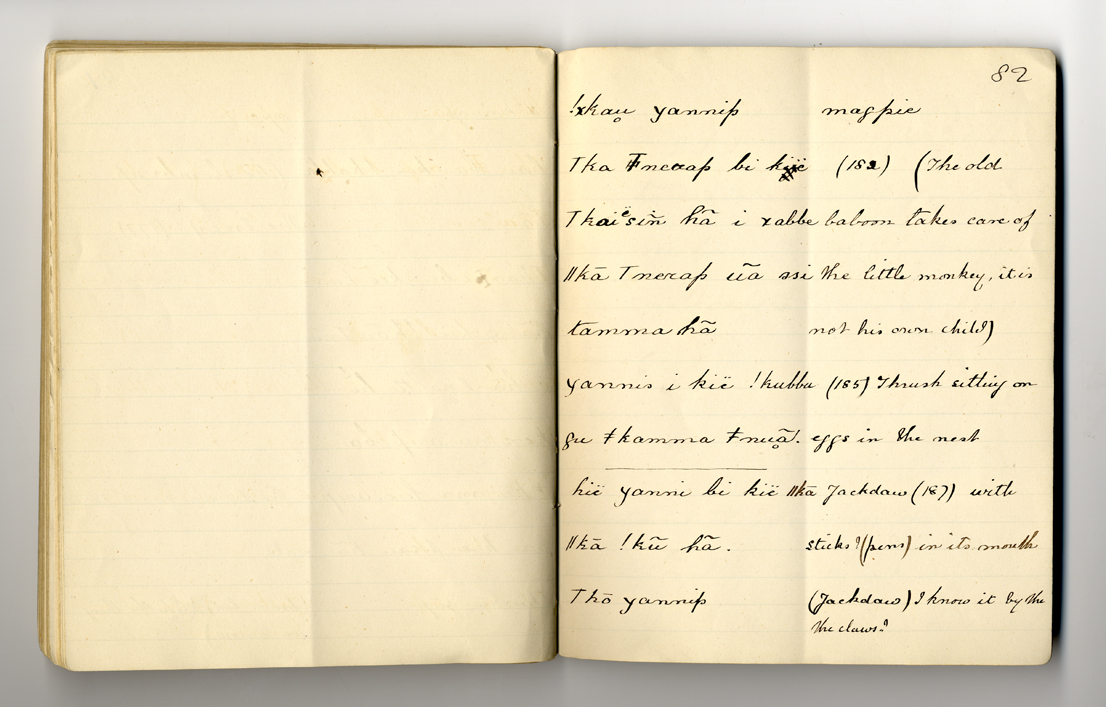 82
!xkau̥ yannip magpie
Tka Ŧnerap bi kïë (182) (The old
Tkaïësiñ hã i xabbe baboon takes care of
ǁkā Tnerap ũa ssi the little monkey, it is
tamma hã not his own child)
yannis i kïë !kubbu (185) Thrush sitting on
gu ŧkamma ŧnuą̃. eggs in the nest
hïë yanni bi kïë ǁkā Jackdaw (187) with
ǁkā !kū hã. sticks? (pens) in its mouth
Tkō yannip (Jackdaw) I know it by the
the claws?